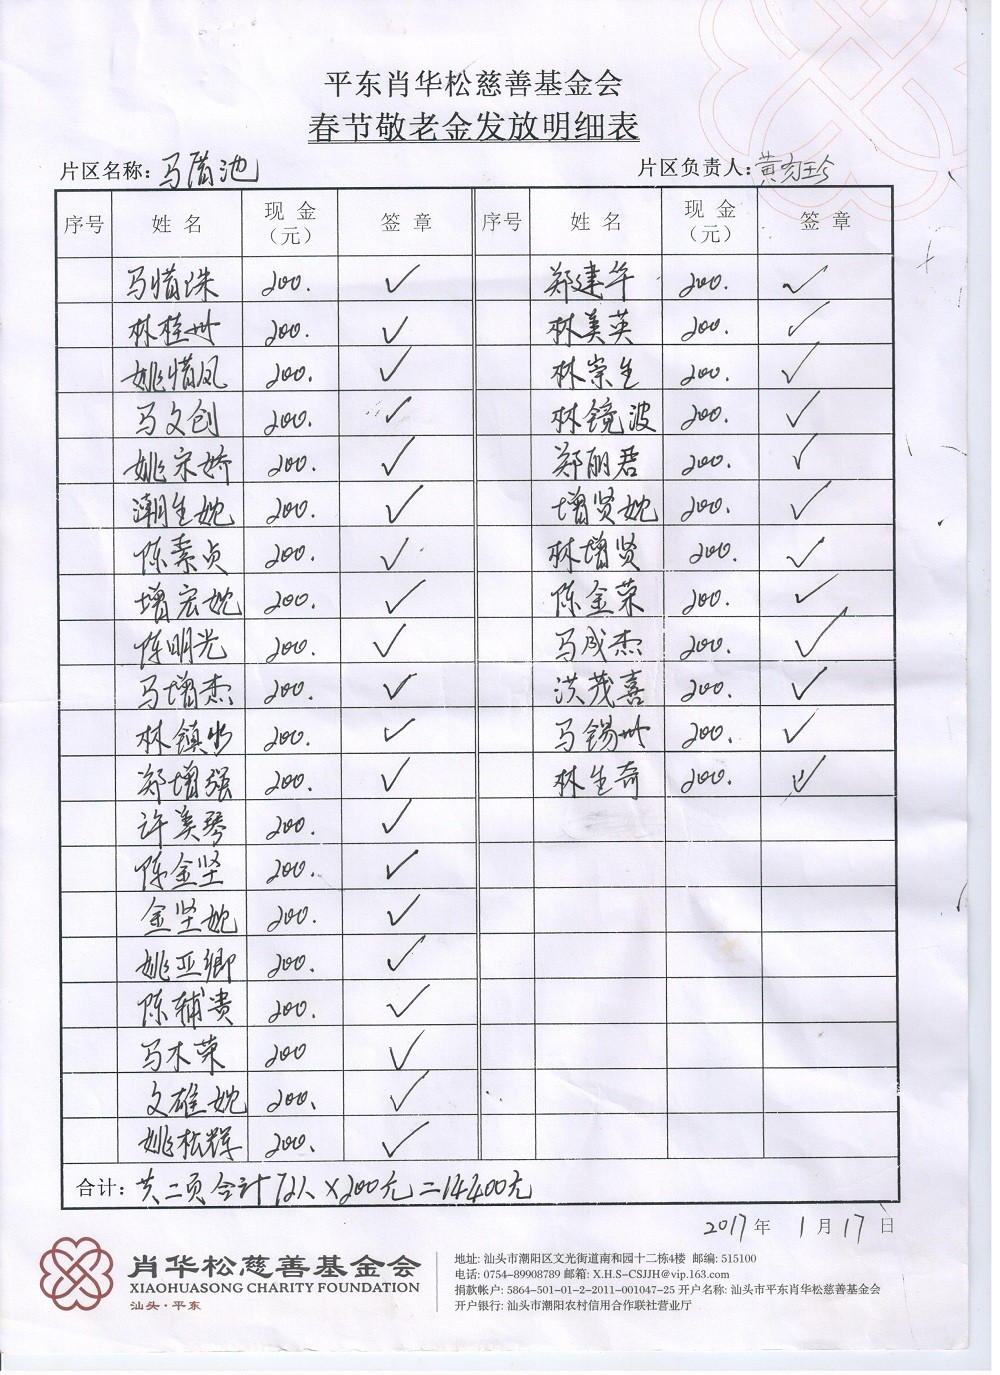 平东肖华松慈善基金会
春节敬老金发放明细表
片区名称：马厝池 片区负责人：黄
序号 姓名 现金（元） 签章 序号 姓名 现金（元） 签章
马惜珠 200. ✓ 郑建华 200. ✓
林桂州 200. ✓ 林美英 200. ✓
姚惜凤 200. ✓ 林崇生 200. ✓
马文创 200. ✓ 林镜波 200. ✓
姚宋娇 200. ✓ 郑丽君 200. ✓
潮生婉 200. ✓ 增贤婉 200. ✓
陈素贞 200. ✓ 林增贤 200. ✓
增宏婉 200. ✓ 陈金荣 200. ✓
陈明光 200. ✓ 马成杰 200. ✓
马增杰 200. ✓ 洪茂喜 200. ✓
林镇 200. ✓ 马锡州 200. ✓
郑增强 200. ✓ 林生奇 200. ✓
许美琴 200. ✓
陈金坚 200. ✓
金坚婉 200. ✓
姚亚卿 200. ✓
陈辅贵 200. ✓
马木荣 200 ✓
文雄婉 200. ✓
姚松辉 200. ✓
合计：共二页合计72人×200元=14400元
2017年1月17日
肖华松慈善基金会
XIAOHUASONG CHARITY FOUNDATION
汕头·平东
地址: 汕头市潮阳区文光街道南和园十二栋4楼 邮编: 515100
电话: 0754-89908789 邮箱: X.H.S-CSJJH@vip.163.com
捐款帐户: 5864-501-01-2-2011-001047-25 开户名称: 汕头市平东肖华松慈善基金会
开户银行: 汕头市潮阳农村信用合作联社营业厅